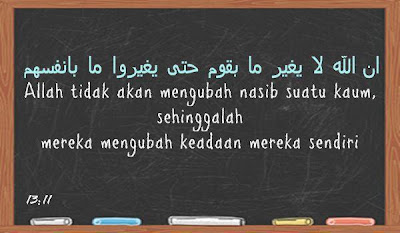 ان الله لا يغير ما بقوم حتى يغيروا ما بانفسهم
Allah tidak akan mengubah nasib suatu kaum,
sehinggalah
mereka mengubah keadaan mereka sendiri
13:11